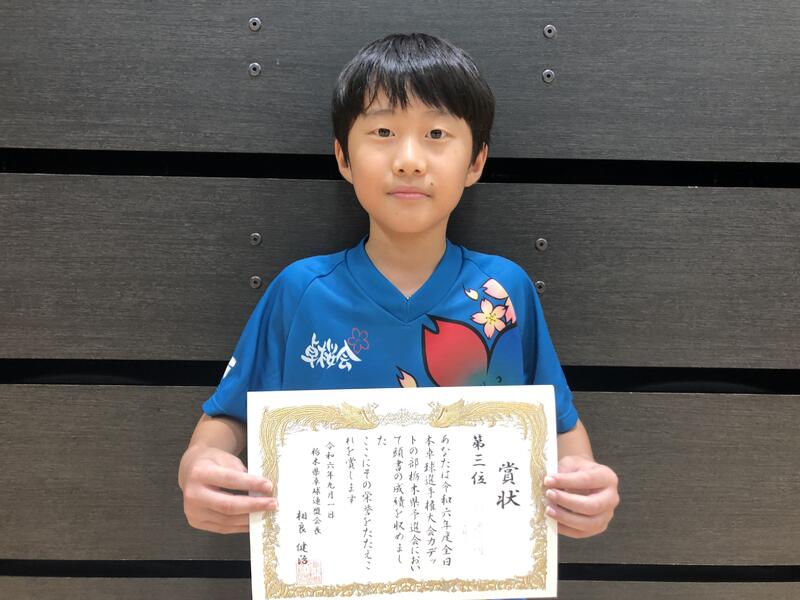 卓桜会
賞状
第三位
あなたは令和六年度全日
本卓球選手権大会カデッ
トの部栃木県予選会におい
て頭書の成績を収めまし
た
ここにその栄誉をたたえこ
れを賞します
令和六年九月一日
栃木県卓球連盟会長
相良 健治